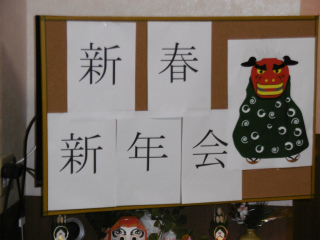 新春
新年会